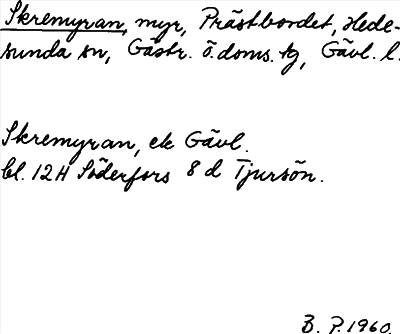 Skremyran, myr, Prästbordet, Hede-
sunda sn, Gästr. ö. doms. tg, Gävl. l.
Skremyran, ek Gävl.
bl. 12H Söderfors 8 d Tjursön.
B. P. 1960.